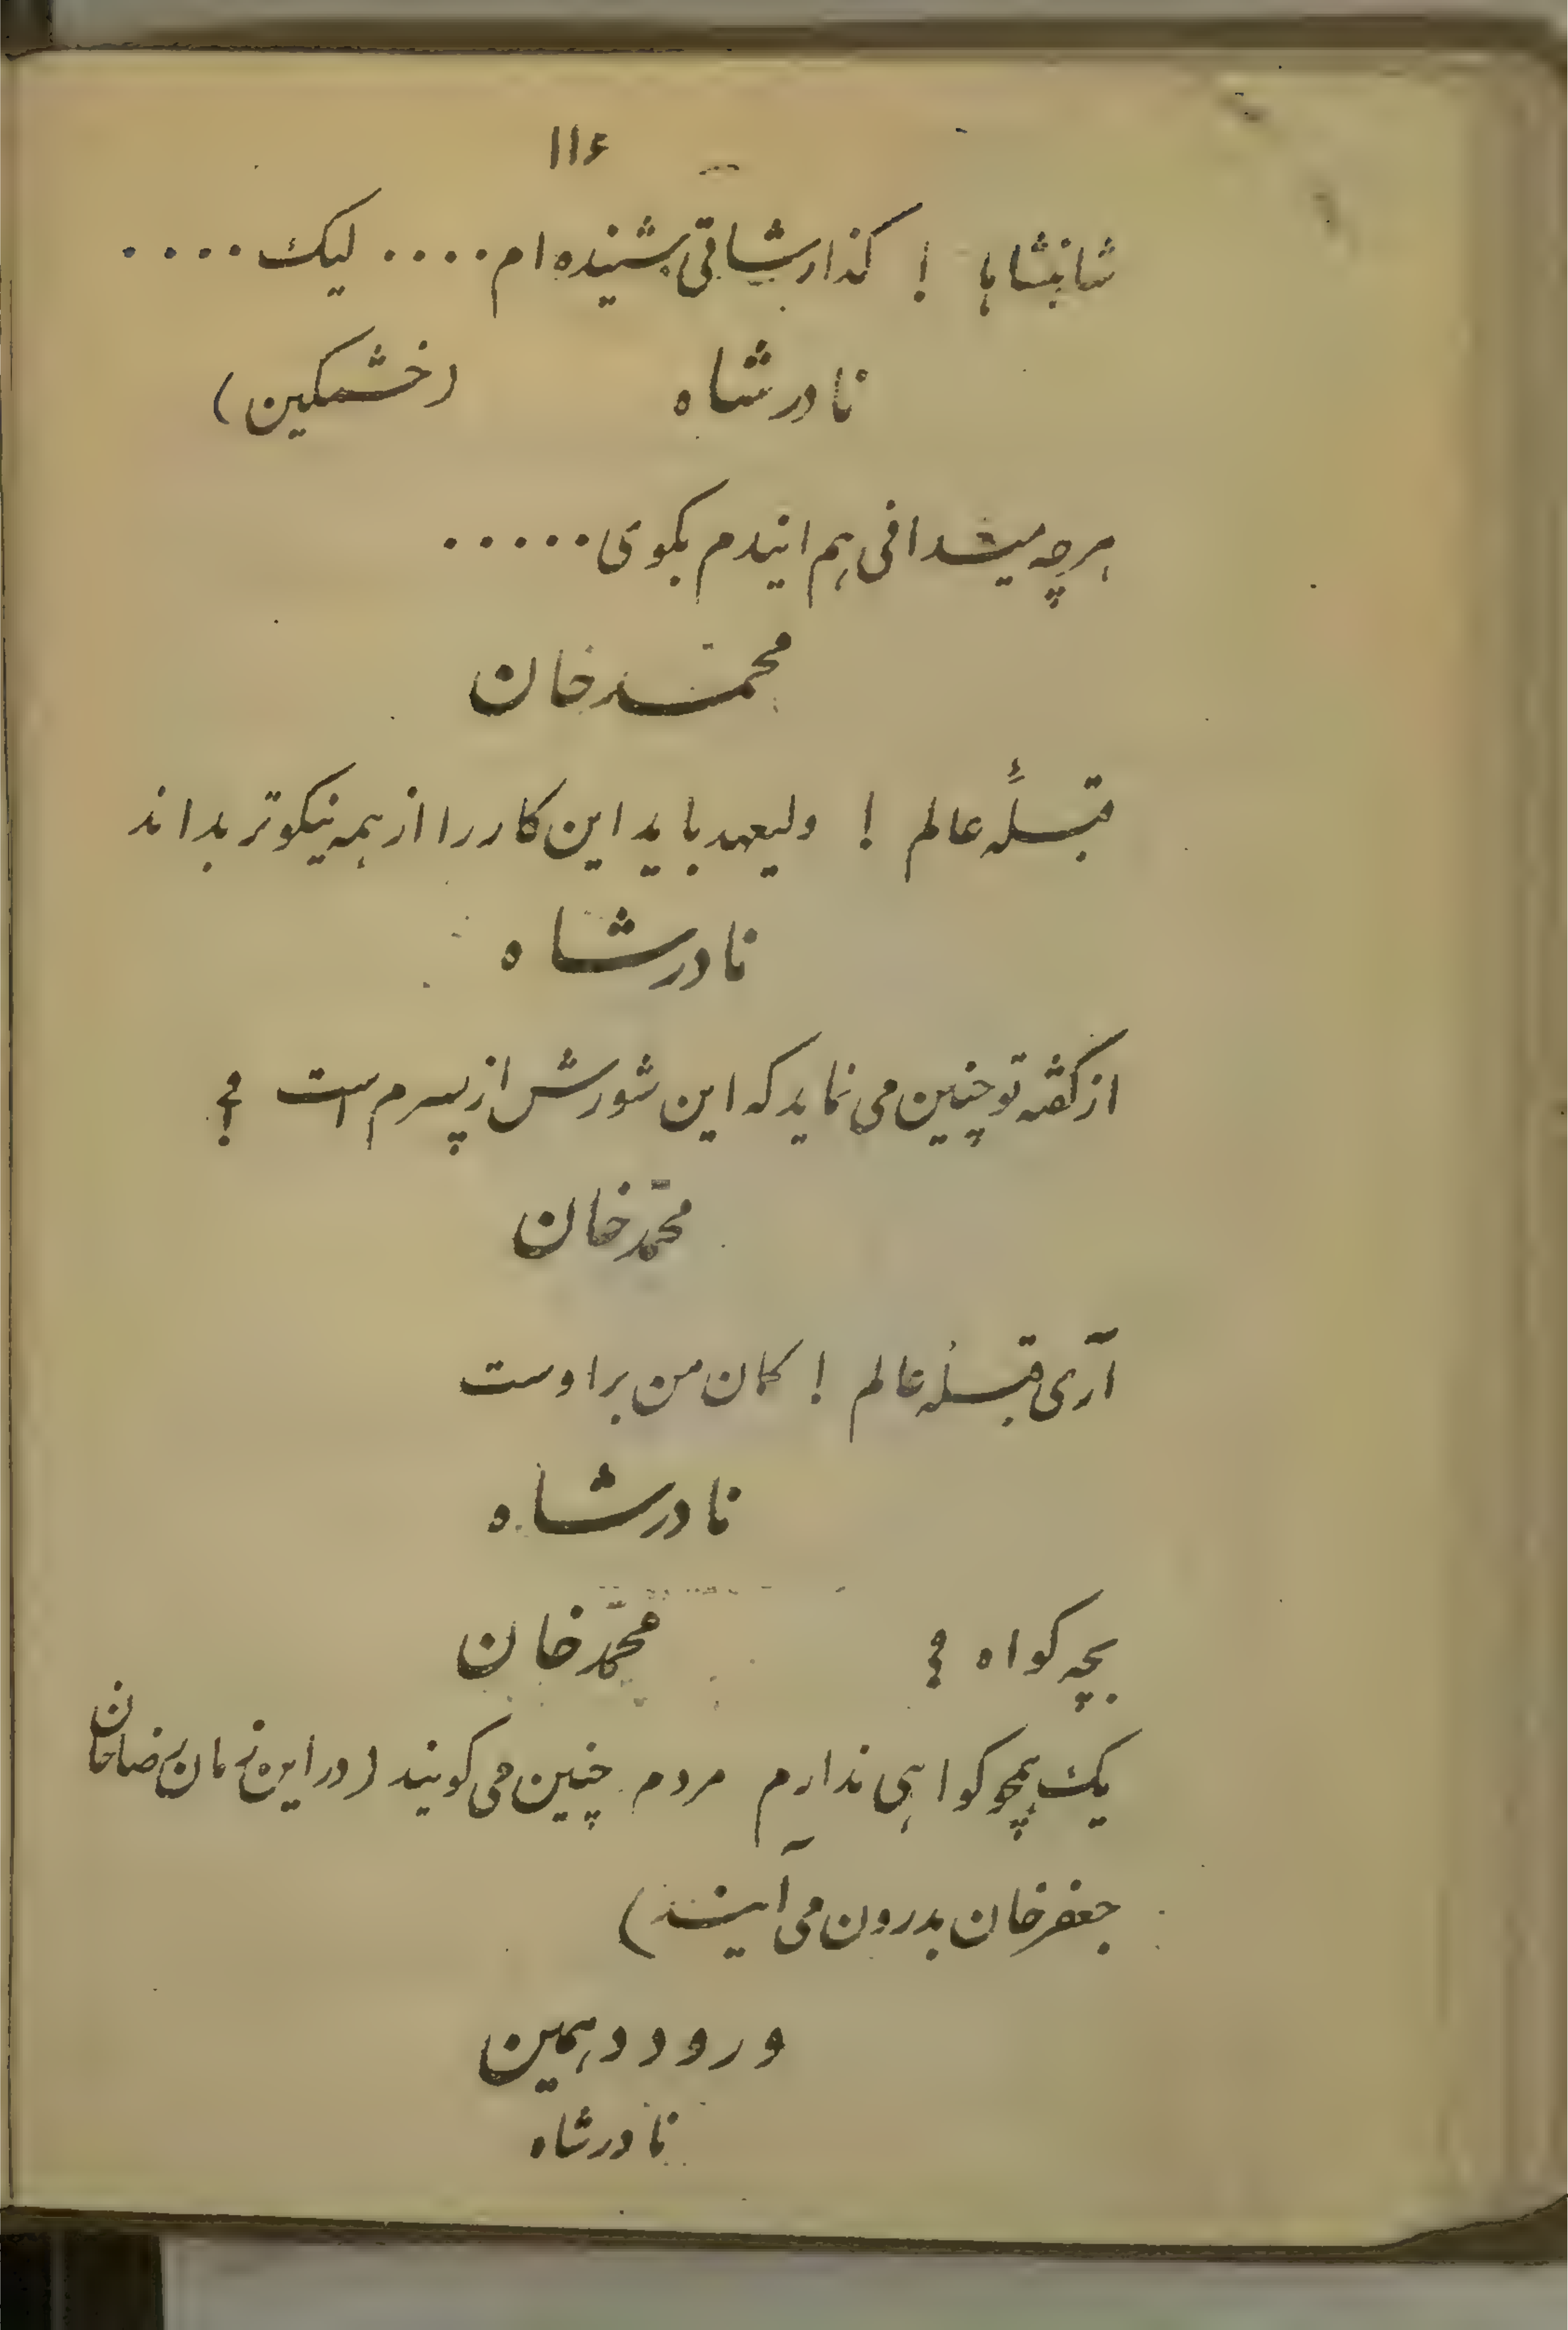 ۱۱۶
شاهنشاها ! کذارشاتی بشنیده ام .... لیک ....
نادرشاه (خشمکین)
هرچه میدانی هم ایندم بکوی .....
محمدخان
قبلهٔ عالم ! ولیعهد باید این کار را از همه نیکوتر بداند
نادرشاه
از کفته تو چنین می نماید که این شورش از پسرم است ؟
محمّدخان
آری قبلهٔ عالم ! کمان من بر اوست
نادرشاه
بچه کواه ؟ محمّدخان
یک همچو کواهی ندارم مردم چنین می کویند (در این زمان رضاخان
جعفرخان بدرون می آیند)
ورود دهمین
نادرشاه